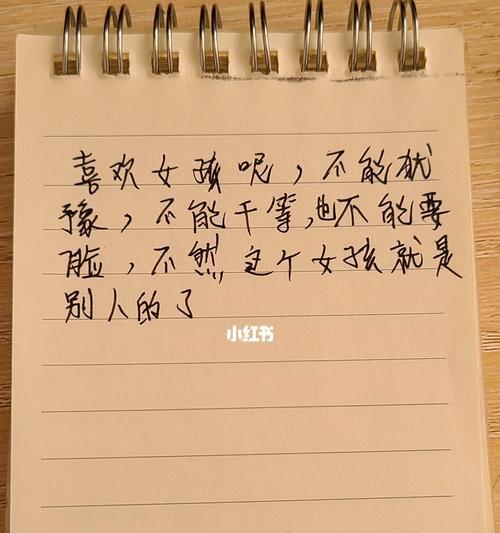 喜欢女孩呢，不能犹
豫，不能干等，也不能要
脸，不然，这个女孩就是
别人的了
小红书